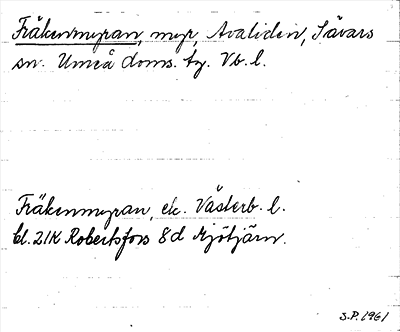 Fräkenmyran, myr, Avaliden, Sävars
sn. Umeå doms. tg. Vb. l.
Fräkenmyran, ek. Västerb. l.
bl. 21K Robertsfors 8d Mjötjärn.
S.P. 1961